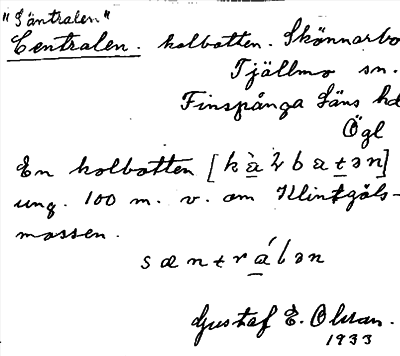 "Säntralen"
Centralen. kolbotten. Skönnarbo
Tjällmo sn.
Finspånga Läns hd
Ögl
En kolbotten [kà̱ɬbat̠ən]
ung. 100 m. v. om Klintgöls-
mossen.
sæntrálən
Gustaf E. Olsson.
1933